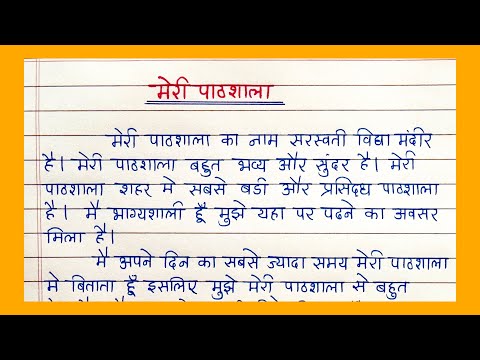 मेरी पाठशाला
मेरी पाठशाला का नाम सरस्वती विद्या मंदीर
है। मेरी पाठशाला बहुत भव्य और सुंदर है। मेरी
पाठशाला शहर मे सबसे बडी और प्रसिद्ध पाठशाला
है। मै भाग्यशाली हूँ मुझे यहा पर पढने का अवसर
मिला है।
मै अपने दिन का सबसे ज्यादा समय मेरी पाठशाला
मे बिताता हूँ इसलिए मुझे मेरी पाठशाला से बहुत